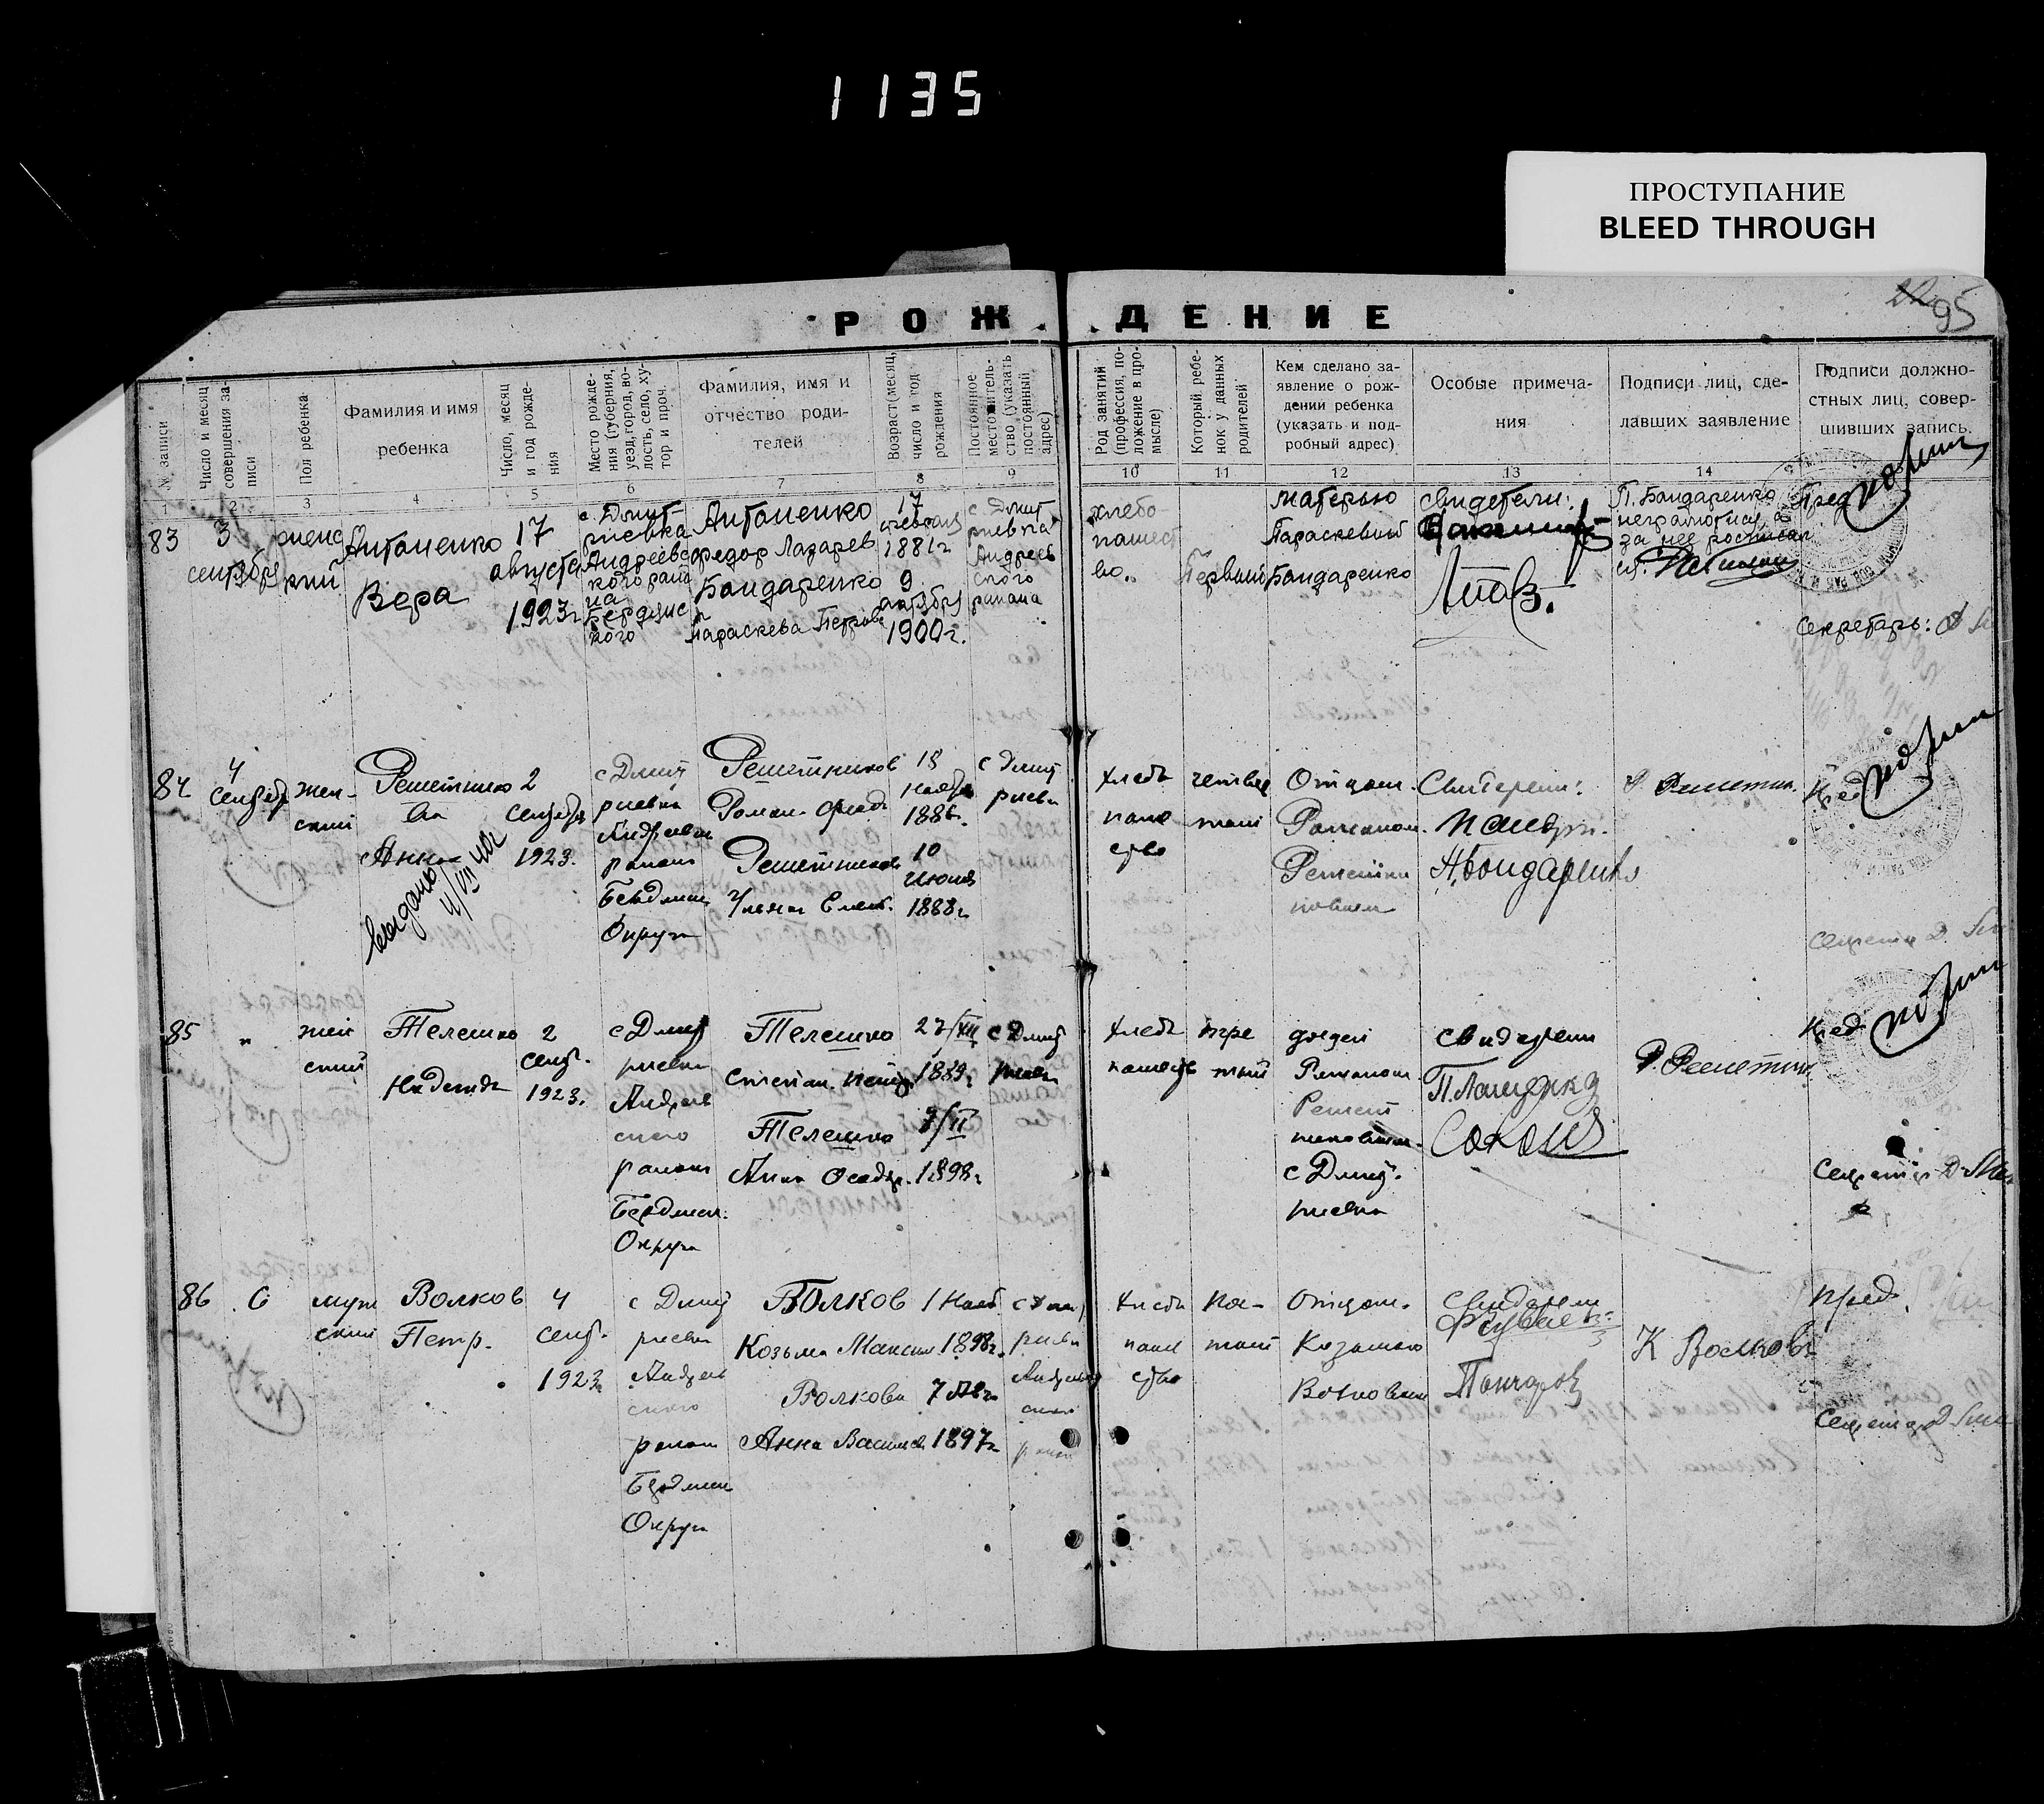 1135
ПРОСТУПАНИЕ
BLEED THROUGH
РОЖДЕНИЕ
95
№ записи
Число и месяц совершения записи
Пол ребенка
Фамилия и имя ребенка
Число, месяц и год рождения
Место рождения (губерния, уезд, город, волость, село, хутор и проч.
Фамилия, имя и отчество родителей
Возраст (месяц, число и год рождения
Постоянное местожительство (указать постоянный адрес)
Род занятий (профессия, положение в промысле)
Который ребенок у данных родителей
Кем сделано заявление о рождении ребенка (указать и подробный адрес)
Особые примечания
Подписи лиц, сделавших заявление
Подписи должностных лиц, совершивших запись.
1 2 3 4 5 6 7 8 9 10 11 12 13 14
83
3
сентября
женский
Антоненко
Вера
17
августа
1923г
с. Дмитриевка
Андреевского района
Бердянского
Антоненко
Федор Лазарев
Бондаренко
Параскева Петров
17
февраля
1881г
9
октября
1900г.
с. Дмитриевка
Андреевского
района
хлебопашество.
Первый
матерью
Параскевий
Бондаренко
свидетели:
П. Бондаренко
неграмотная, а
за нее росписал
Пред
Секретарь:
84
4
сентября
женский
Решетникова
Анна
выдано
2
сентября
1923.
с Дмитриевка
Андреевск
района
Бердянск
Округа
Решетников
Роман
Решетникова
Ульяна
18
ноября
1886г.
10
июня
1888г
с Дмитриевка
хлебопашество
четвертый
Отцом
Романом
Решетниковым
Свидетели:
Н. Бондаренко
Пред
Секретарь
85
"
женский
Телешко
Надежда
2
сент.
1923.
с Дмитриевка
Андреевского
района
Бердянск.
Округа
Телешко
Степан Петр
Телешко
Анна Осад
27/XII
1889г
7/II
1898г
с Дмитриевка
хлебопашество
третий
дядей
Романом
Решетниковым
с Дмитриевка
свидетели
Р. Решетник
Пред
Секретар
86
6
мужской
Волков
Петр.
4
сент.
1923г
с Дмитриевка
Андреевского
района
Бердянск
Округа
Волков
Козьма Максим
Волкова
Анна Васильев
1 Нояб
1898г.
7 Авг
1897г
с Дмитриевка
Андреевского
района
хлебопашество
Отцом.
Козьмою
Волковым
Свидетели
К Волковъ
Пред.
Секретар